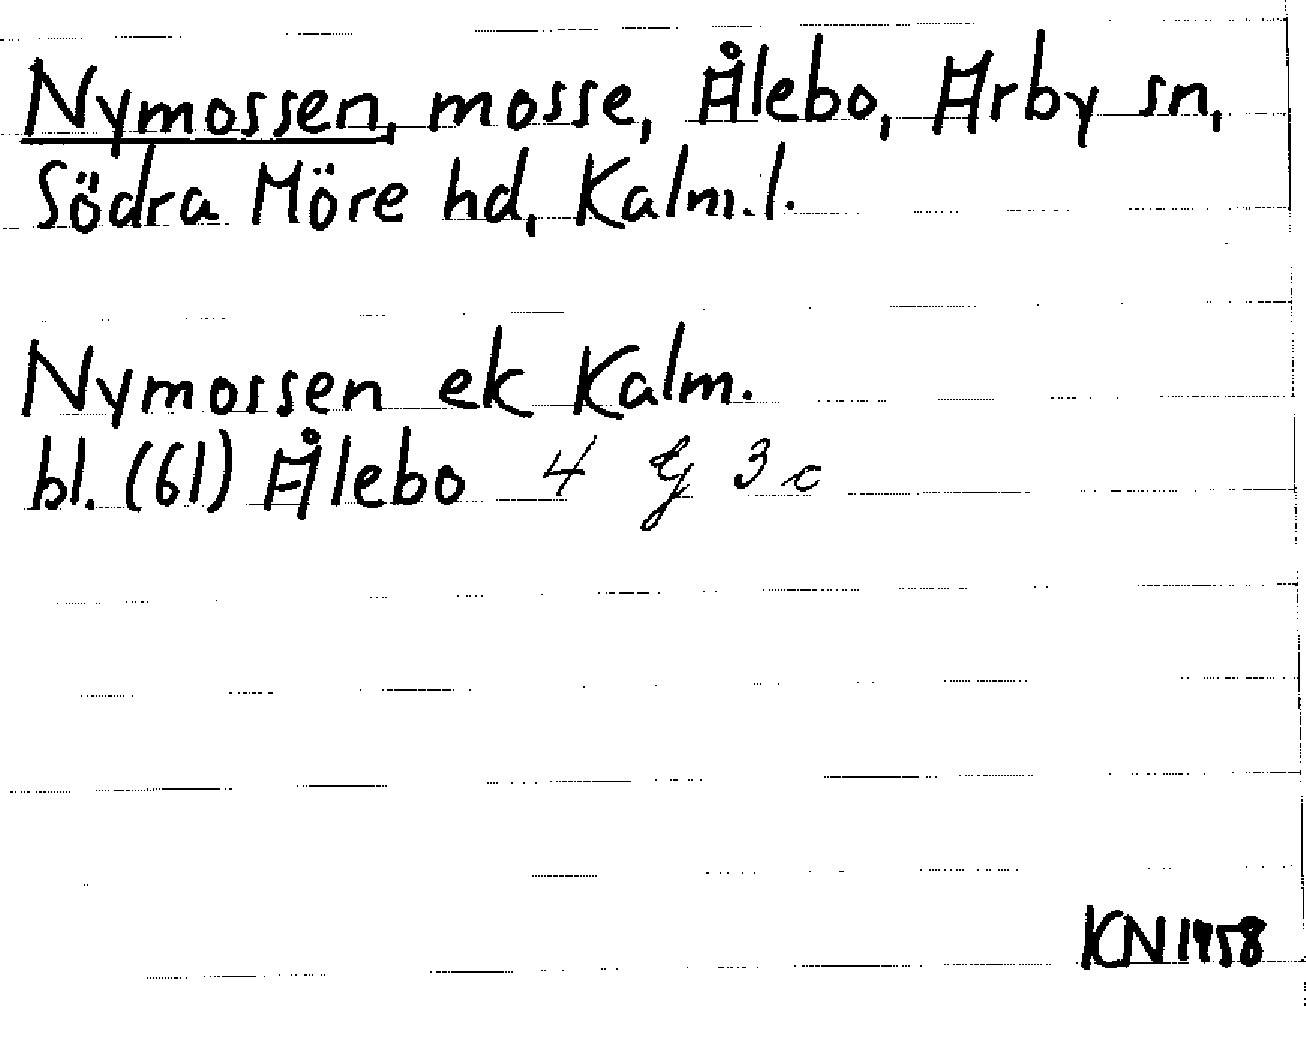 Nymossen, mosse, Ålebo, Arby sn,
Södra Möre hd, Kalm.l.
Nymossen ek Kalm.
bl. (61) Ålebo 4 G 3 c
KN 1958